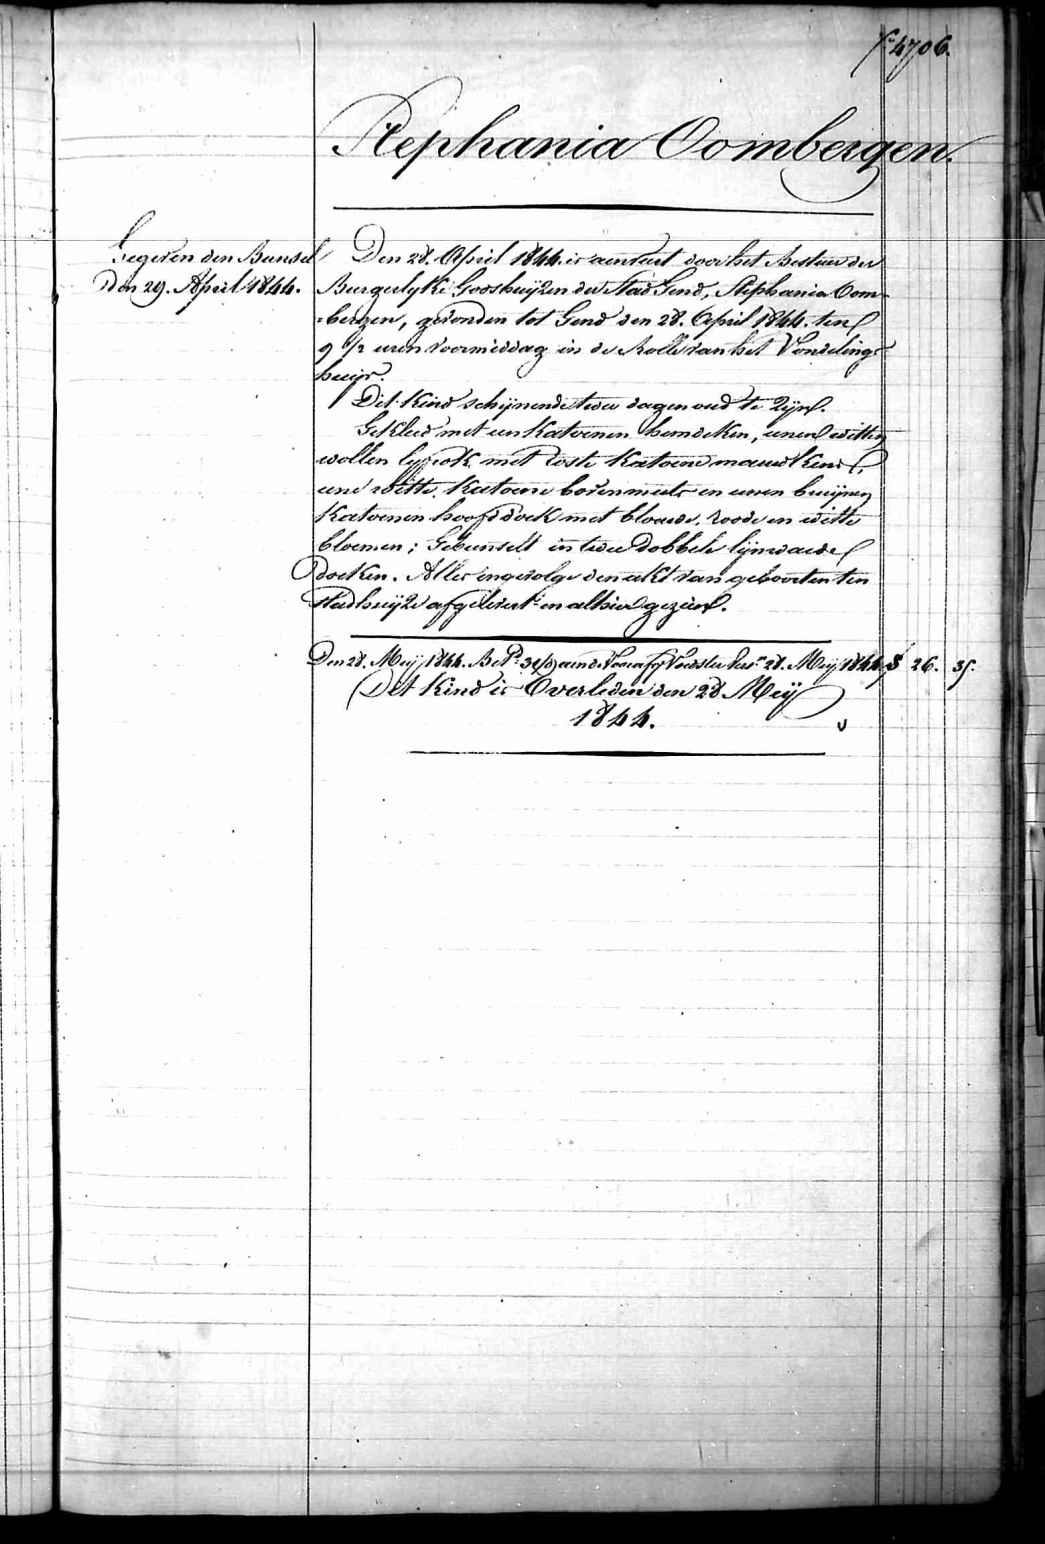 f.º 4706.
Stephania Oombergen.
Gegeven den Bunsel
Den 29. April 1844.
Den 28. April 1844. is aenveert door het Bestuer der
Burgerlyke Godshuijzen der Stad Gend, Stephania Oom-
=bergen, gevonden tot Gend den 28. April 1844. ten
9 1/2 uren voormiddag in de Rolle van het Vondeling-
huijs.
Dit Kind schijnende twee dagen oud te Zijn.
Gekleed met een Katoenen hemdeken, eenen witten
wollen lyfrok met roste Katoene mauwkens,
eene witte Katoene bovenmuts en eenen bruijnen
Katoenen hoofddoek met blauwe, roode en witte
bloemen; Gebunselt in twee dobbele lijnwaede
doeken. Alles ingevolge den akt van geboorte ten
Stadhuijze afgelevert en alhier gezien.
Den 28. Meij 1844. Bet.d aende Voedster 28. Meij 1844 f 26. 35.
Dit Kind is Overleden den 28 Meij
1844.